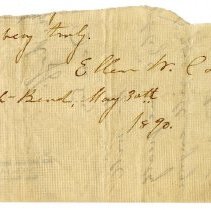 very truly.
Ellen W. Co
Bend, May 30th
1890.